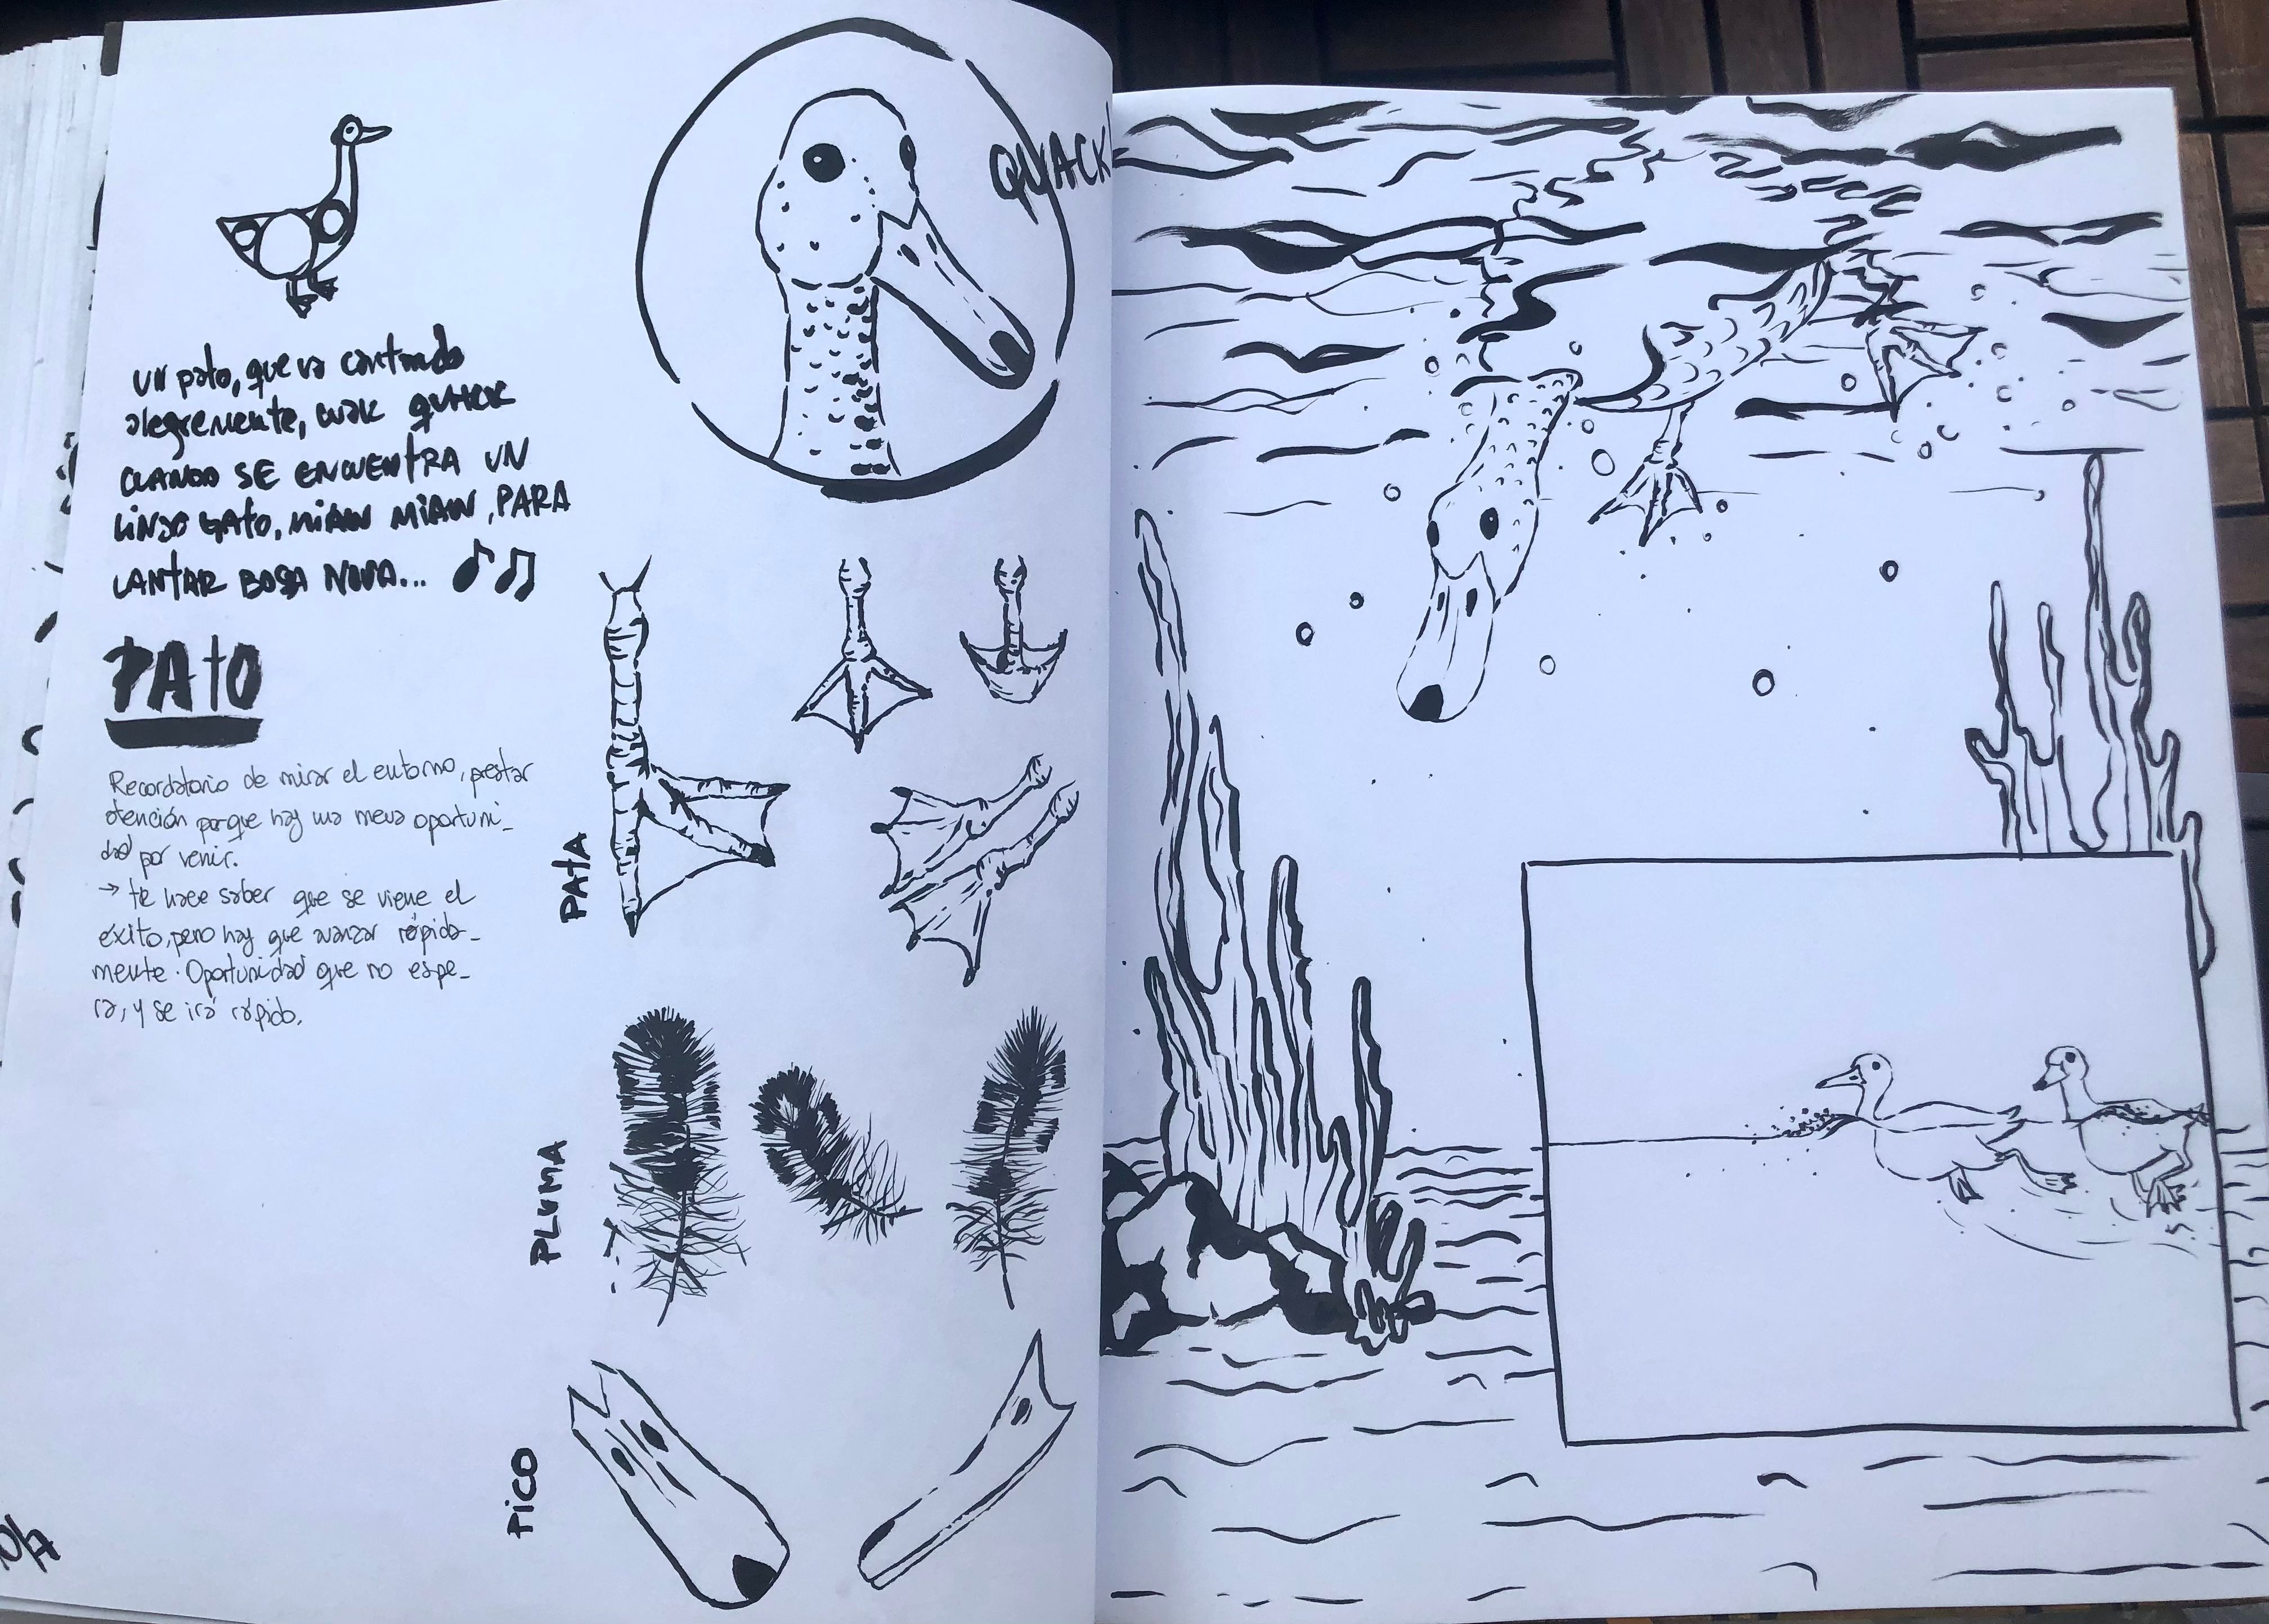 QUACK
UN pato, que va cantando
alegremente, cuak quack
CUANDO SE ENCUENTRA UN
LINDO GATO, MIAW MIAW, PARA
CANTAR BOSA NOVA...
PATO
Recordatorio de mirar el entorno, prestar
atención porque hay una nueva oportuni_
dad por venir.
→ te hace saber que se viene el
éxito, pero hay que avanzar rápida_
mente. Oportunidad que no espe_
ra, y se irá rápido.
PATA
PLUMA
PICO